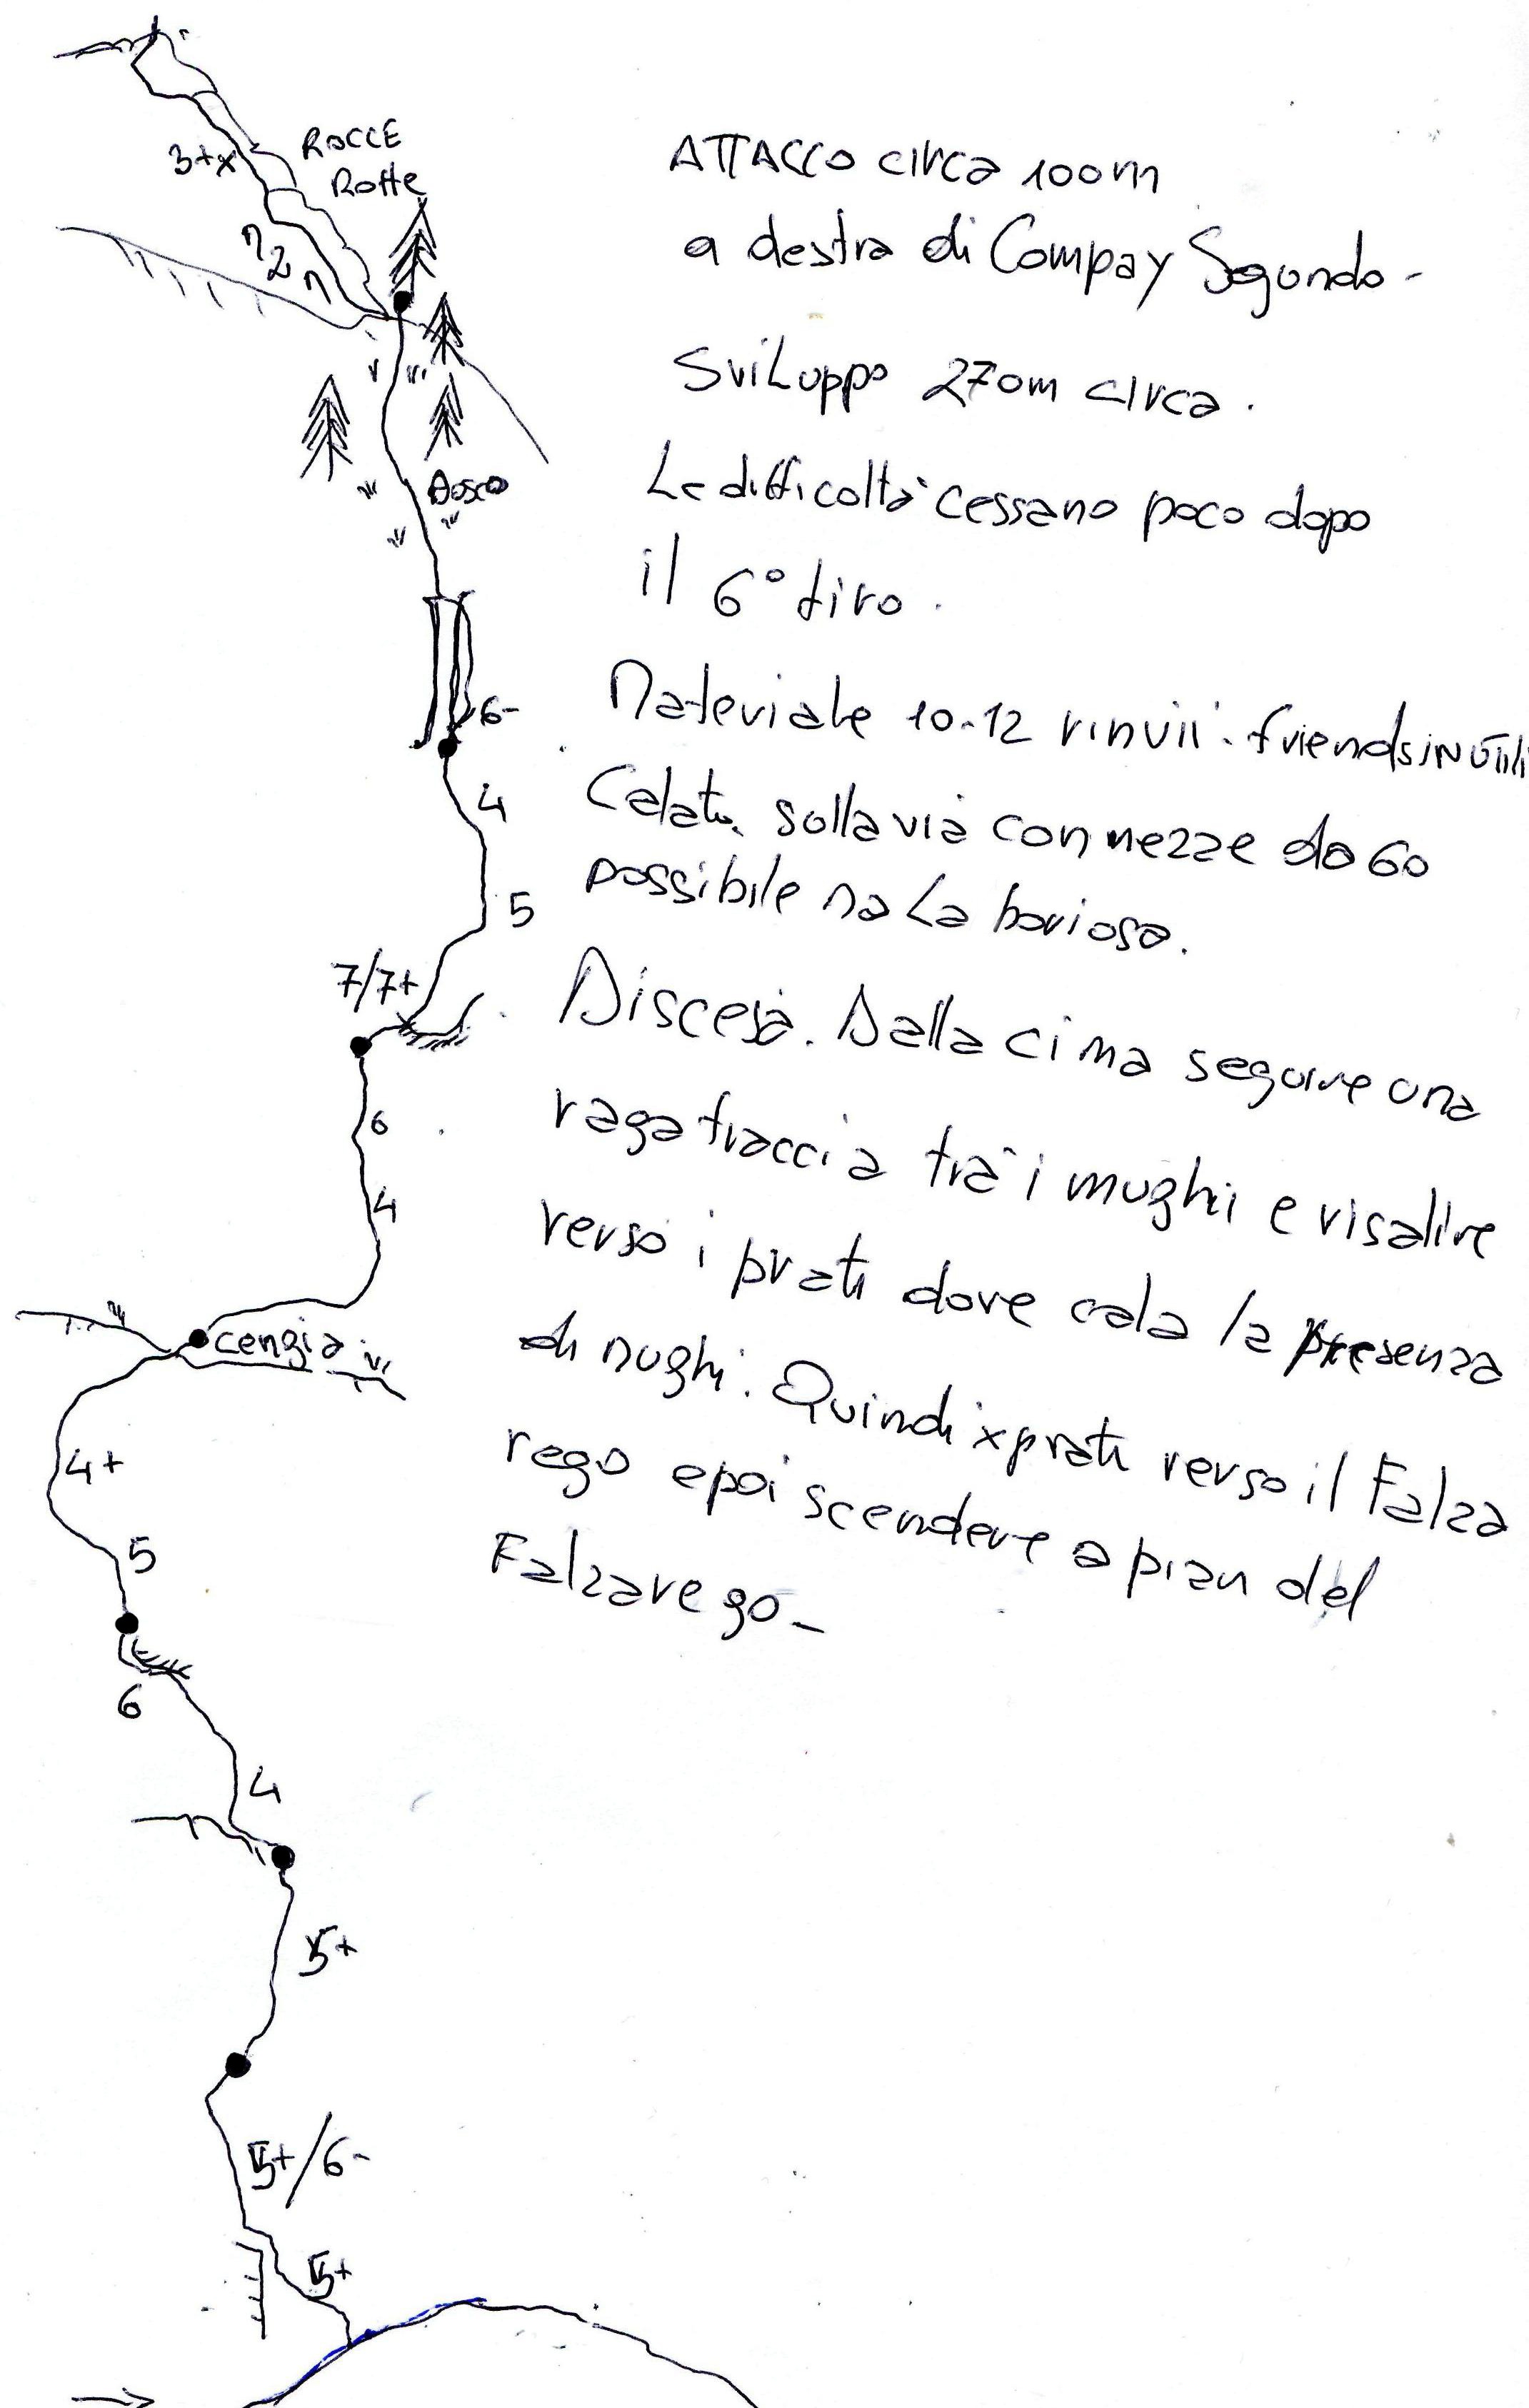 ROCCE
Rotte
3+x
2
Bosco
6-
4
5
7/7+
6
4
cengia
4+
5
6
4
5+
5+/6-
5+
ATTACCO circa 100m
a destra di Compay Segundo -
SviLuppo 270m circa.
Le difficoltà cessano poco dopo
il 6° tiro.
Materiale 10-12 rinvii. friends inutili
Calata sulla via con mezze da 60
possibile ma Laboriosa.
Discesa. Dalla cima seguire una
vaga traccia tra i mughi e risalire
verso i prati dove cala la presenza
di mughi. Quindi x prati verso il Falza
rego e poi scendere a pian del
Falzarego -